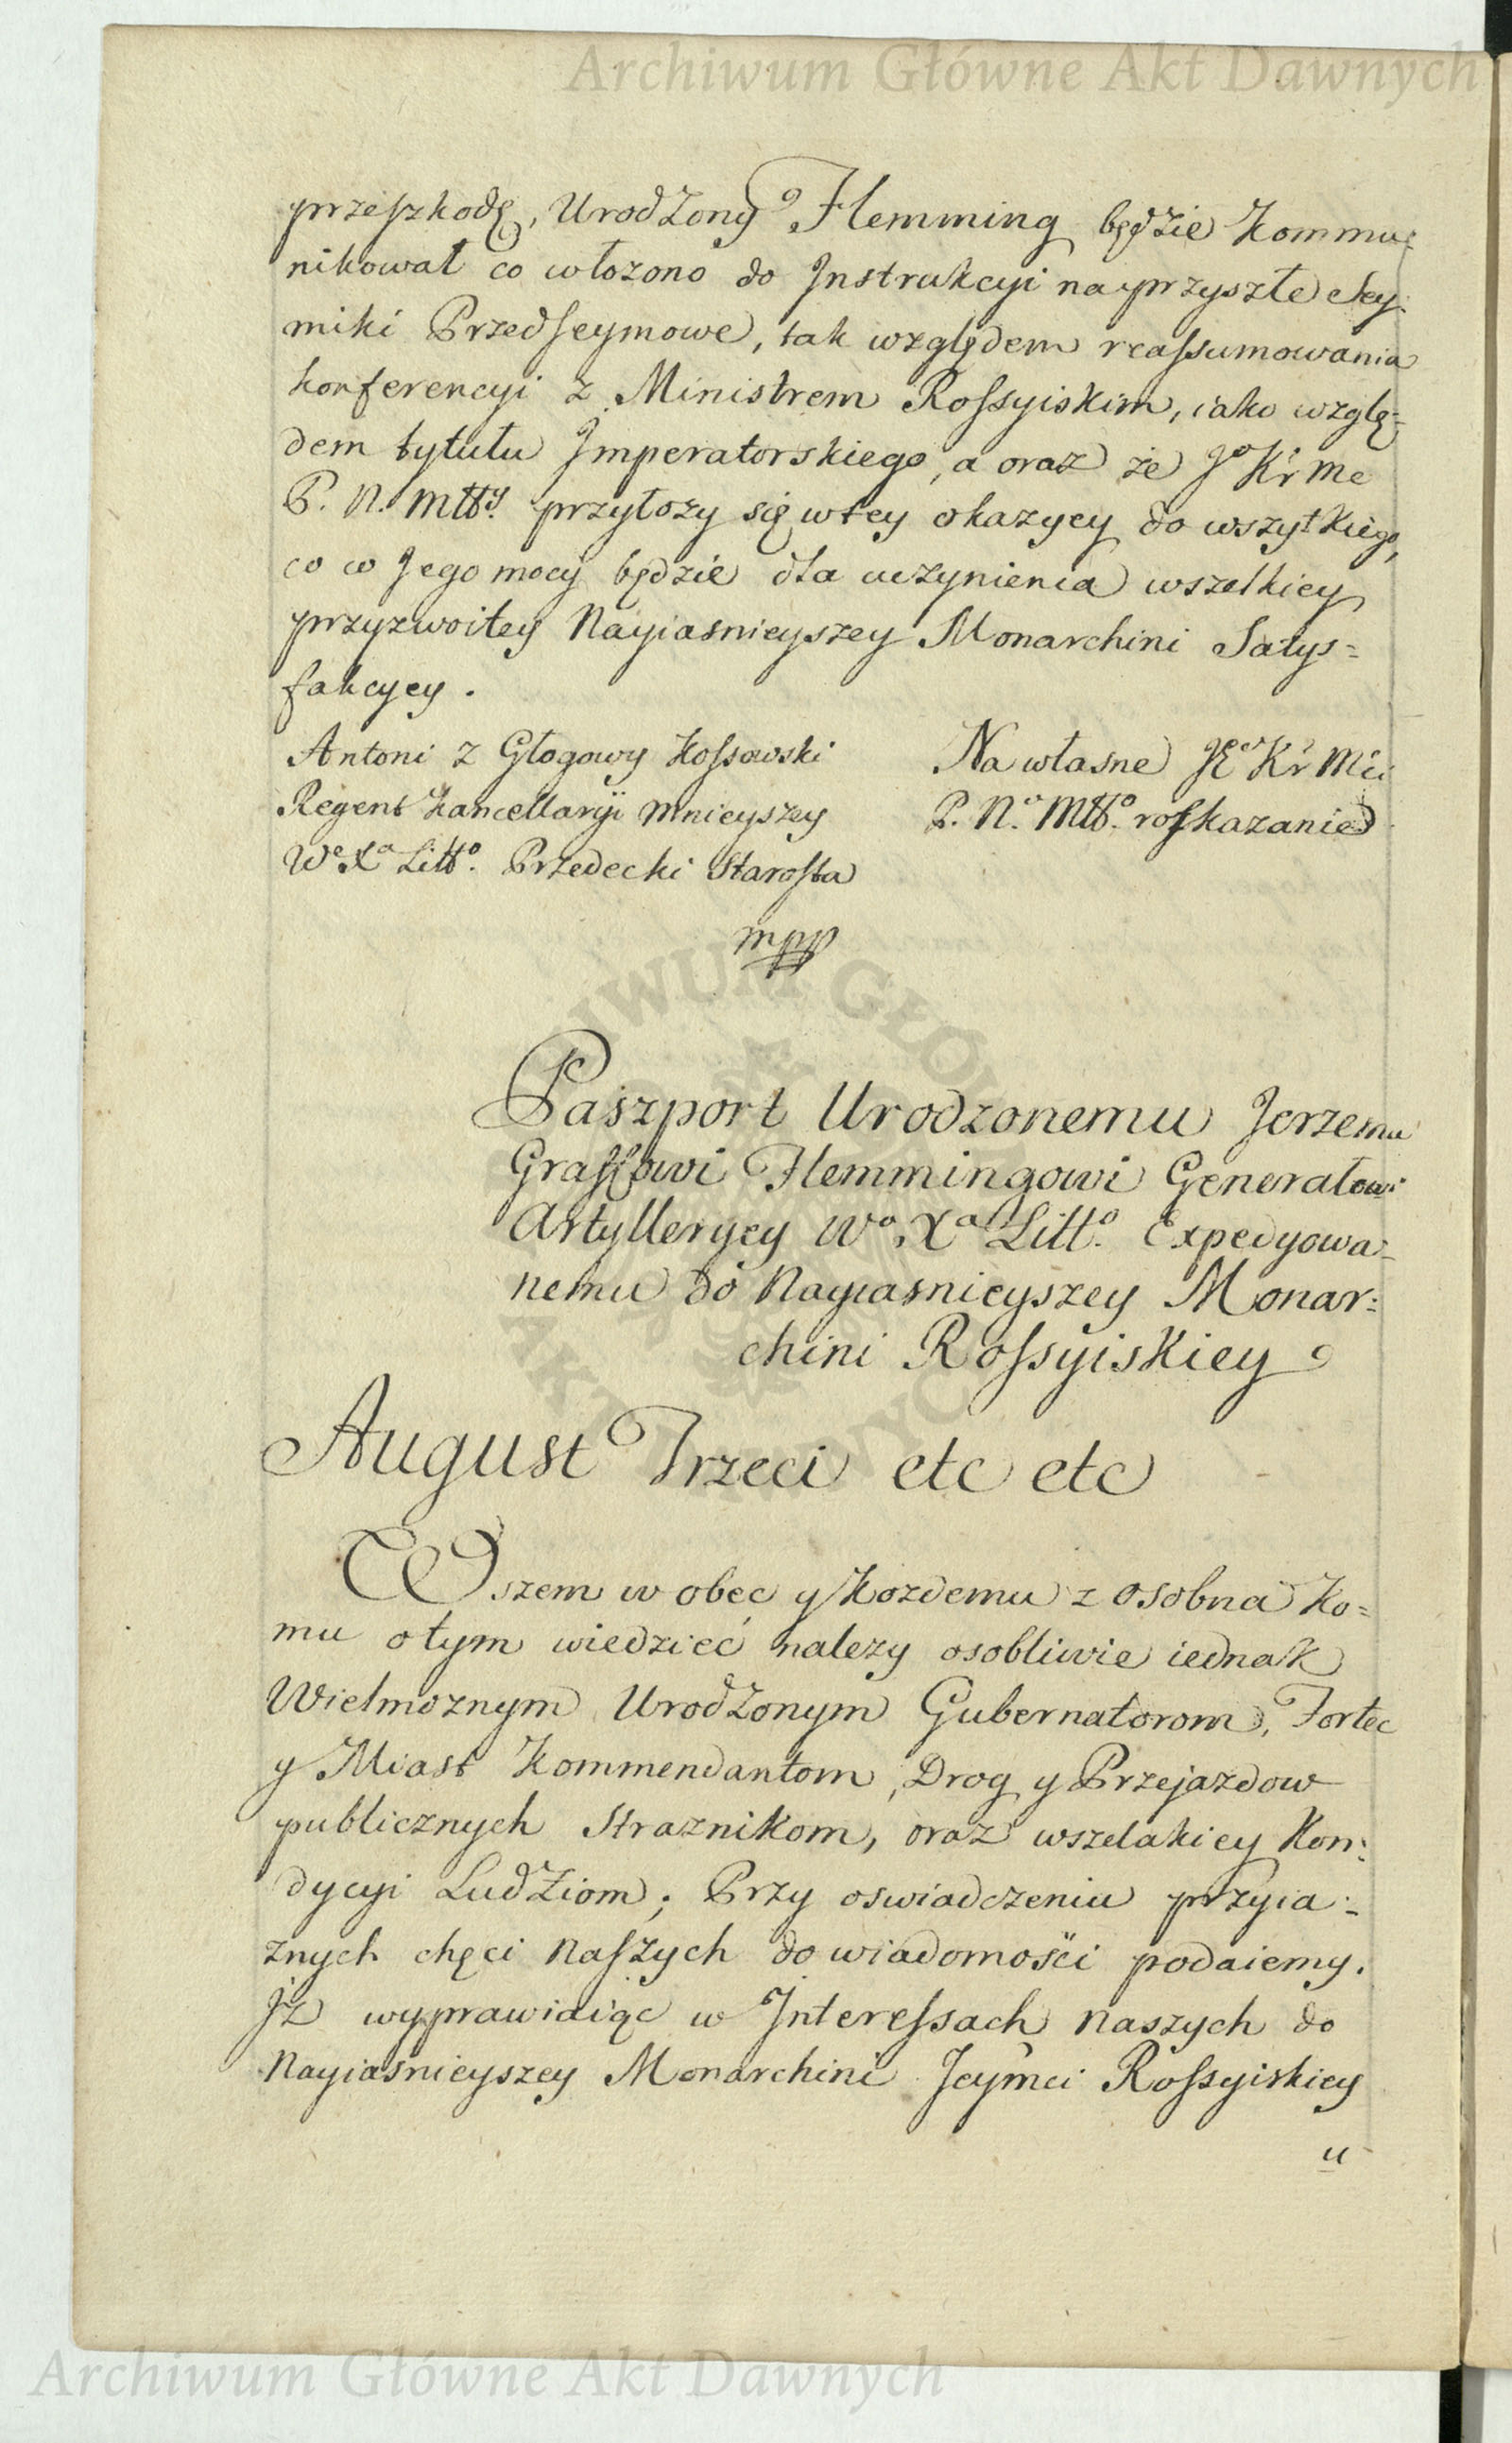 Archiwum Główne Akt Dawnych
przeszkodę, Urodzony Flemming będzie kommu=
nikował co włozono do Jnstrukcyi na przyszłe Sey=
miki Przedseymowe, tak względem reassumowania
konferencyi z Ministrem Rossyiskim, iako wzglę=
dem tytułu Jmperatorskiego, a oraz że Jº Kr Mc
P. N. Mttʸ. przyłozy się w tey okazyey do wszytkiego,
co w Jego mocy będzie dla uczynienia wszelkiey
przyzwoitey Nayiasnieyszey Monarchini Satys=
fakcyey.
Antoni z Głogowy Kossowski
Regent Kancellaryi Mnieyszey
Wº Xª Littº. Przedecki Starosta
mpp
Na własne JEº Kr Mci
P. Nº. Mttº. roskazanie
Paszport Urodzonemu Jerzemu
Graffowi Flemmingowi Generałowi
Artylleryey Wº. Xª Littº. Expedyowa=
nemu do Nayiasnieyszey Monar=
chini Rossyiskiey
August Trzeci etc etc
Wszem w obec y Kozdemu z osobna Ko=
mu o tym wiedzieć nalezy osobliwie iednak
Wielmoznym Urodzonym Gubernatorom, Fortec
y Miast Kommendantom, Drog y Przejazdow
publicznych Straznikom, oraz wszelakiey Kon=
dycyi Ludziom; Przy oswiadczeniu przyia=
znych chęci Naszych do wiadomości podaiemy.
Jż wyprawiaiąc w Jnteressach Naszych do
Nayiasnieyszey Monarchini Jeymci Rossyiskiey
u
Archiwum Główne Akt Dawnych